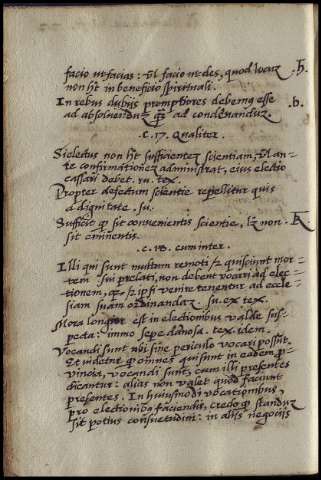 facio ut facias: vel facio ut des, quod
non ht in beneficio spirituali.
In rebus dubiis promptiores debemus esse .b.
ad absolvendum quam ad condemnandum.
.c. 17. Qualiter.
Si electus non ht sufficientem scientiam, vel an-
te confirmationem administrat, eius electio
cassari debet. su. tex.
Propter defectum scientie repellitur quis
a dignitate. su.
Sufficit qp sit convenientis scientie, lz non
sit eminentis.
.c. 18. cum inter.
Illi qui sunt multum remoti
sui prelati, non debent vocari ad elec-
tionem, venire tenentur ad eccle-
siam suam ordinandam. su. ex tex.
Mora longior est in electionibus valde sus-
pecta: immo sepe damnosa. tex. idem.
Vocandi sunt ubi sine periculo vocari possunt.
Et videtur qp omnes qui sunt in eadem pro-
vincia, vocandi sunt, cum illi presentes
dicantur: alias non valet quod faciunt
presentes. In huiusmodi vocationibus,
pro electionibus faciendis, credo qp standum
sit potius consuetudini: in aliis negociis